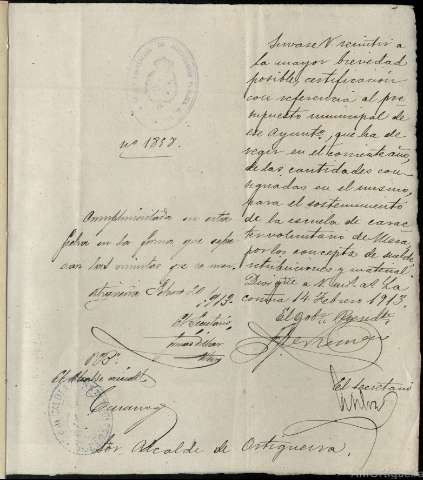 Sirvase V remitir a
la mayor brevedad
posible, certificación
con referencia al pre
supuesto municipal de
ese Ayuntº, que ha de
regir en el corriente año,
de las cantidades con
signadas en el mismo,
para el sostenimiento
de la escuela de carac
ter voluntario de Mera,
por los conceptos de sueldo,
retribuciones y material.
Dios gue a V. m. a. La
Coruña 14 Febrero 1913.
El gobr Presidte
El secretario
nº 1888.
Cumplimentada en esta
fecha en la forma que expre
san las minutas que se unen.
Ortigueira Febrero 1913.
El Secretario,
El Alcalde accidtl
Sor. Alcalde de Ortigueira.